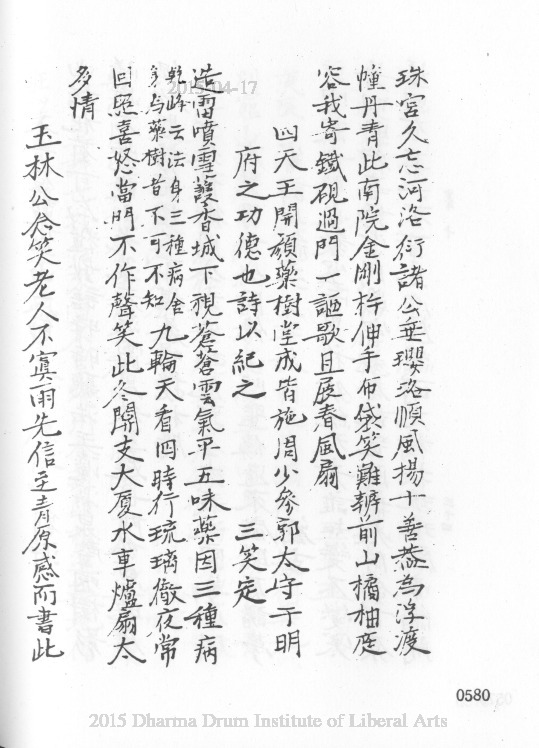 珠宮久忘河洛衍諸公垂瓔珞順風揚十善藹為浮渡
幢丹青此南院金剛杵伸手布袋笑難辨前山橘柚庭
容我寄鐵硯過門一謳歌且展春風扇
四天王開額藥樹堂成皆施周少參郭太守于明
府之功德也詩以紀之 三笑定
浩雷噴雪發香城下視蒼蒼雲氣平五味藥因三種病
乾峰云法身三種病舍
多与藥樹昔不可不知
九輪天看四時行琉璃徹夜常
回照喜怒當門不作聲笑此冬關支大厦水車爐扇太
多情
玉林公念笑老人不寘雨先信至青原感而書此
0580
2015-04-17
2015 Dharma Drum Institute of Liberal Arts